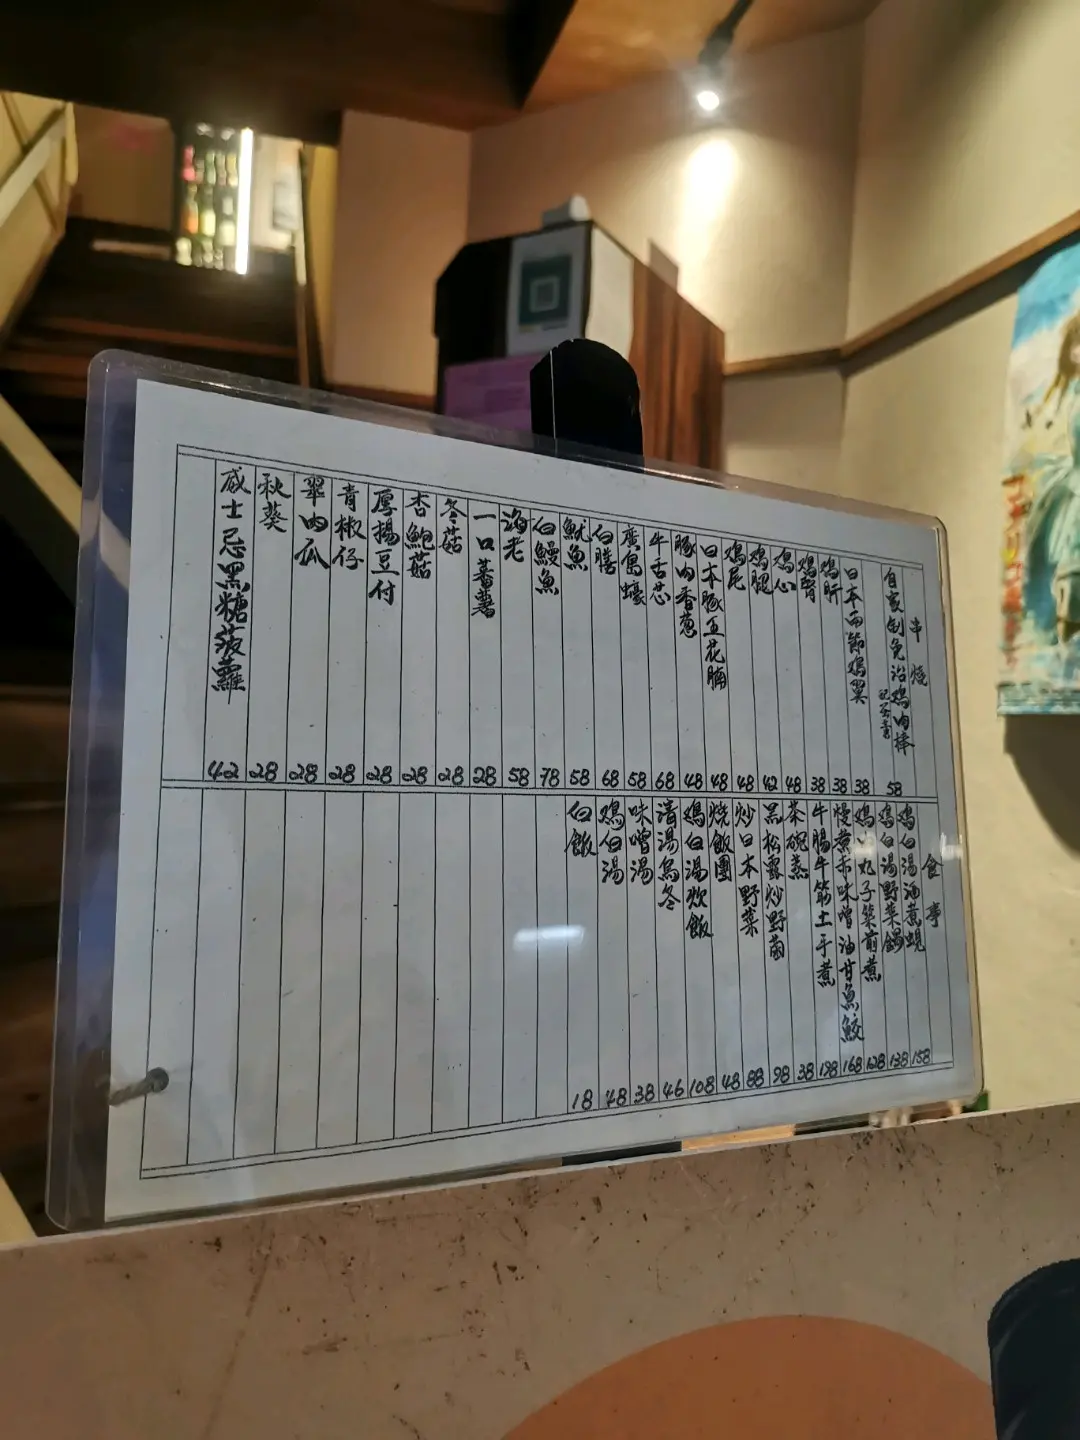 串燒
自家制免治鸡肉棒 58
日本両節鸡翼 38
鸡肝 38
鸡腎 38
鸡心 48
鸡腿 42
鸡尾 48
日本豚五花腩 48
豚肉香葱 48
牛舌芯 68
廣島蠔 58
白膳 68
魷魚 58
白鱔魚 78
海老 58
一口蕃薯 28
冬菇 28
杏鮑菇 28
厚揚豆付 28
青椒仔 28
翠肉瓜 28
秋葵 28
威士忌黑糖菠蘿 42
食事
鸡白湯酒煮蜆 158
鸡白湯野菜鍋 138
鸡肉丸子築前煮 128
慢煮赤味噌油甘魚鮫 168
牛腸牛筋土手煮 198
茶碗蒸 38
黑松露炒野菌 98
炒日本野菜 88
燒飯團 48
鸡白湯炊飯 108
清湯烏冬 46
味噌湯 38
鸡白湯 48
白飯 18